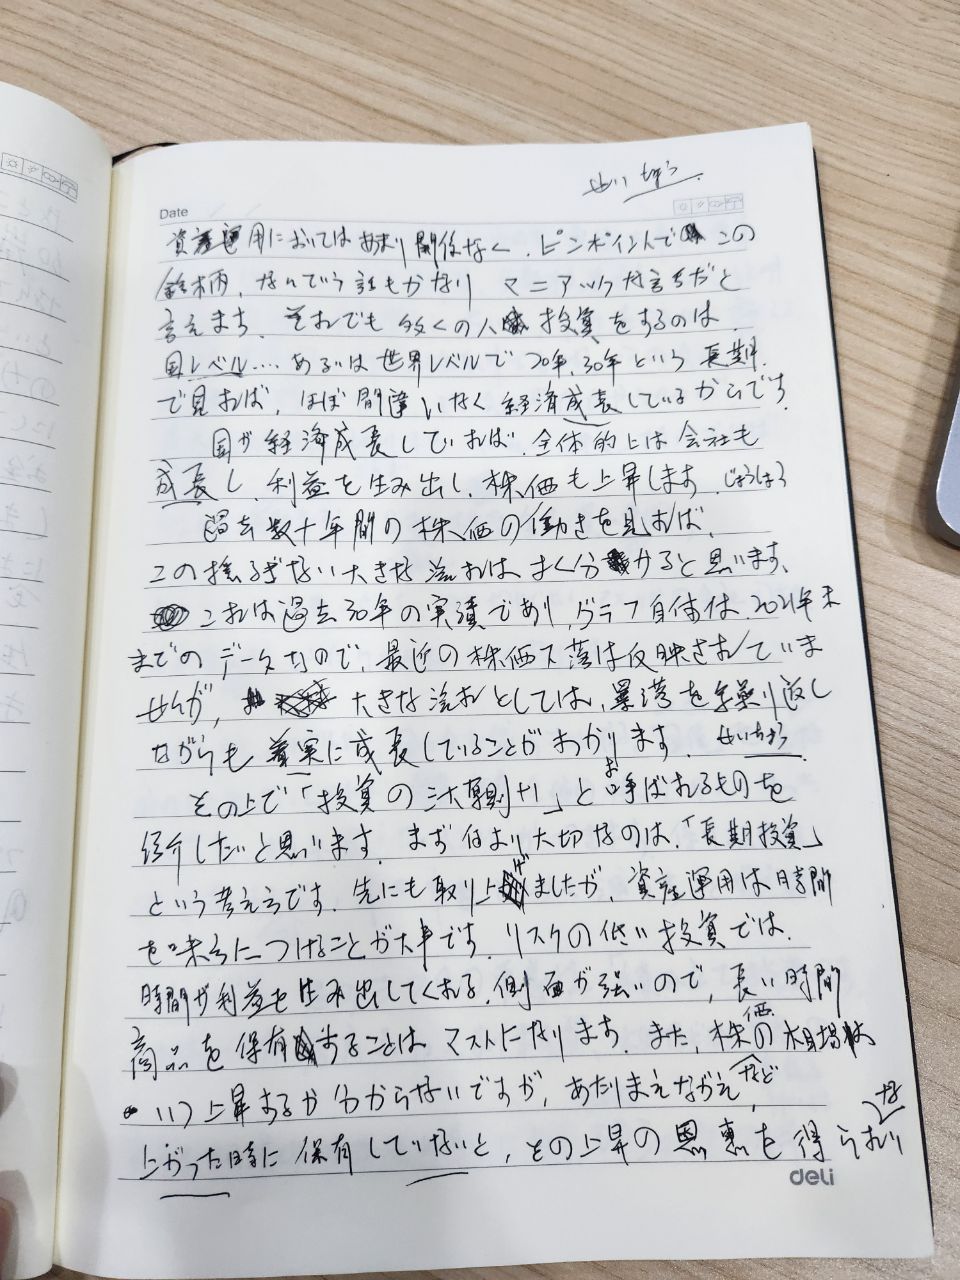 せいちょう
Date
資産運用においてはあまり関係なく、ピンポイントでこの
銘柄、なんていう話もかなりマニアックな言ちだと
言えます。それでも多くの人が投資をするのは、
国レベル…あるいは世界レベルで20年、30年という長期
で見れば、ほぼ間違いなく経済成長しているからです。
国が経済成長していれば、全体的には会社も
成長し、利益を生み出し、株価も上昇します。じょうしょう
過去数十年間の株価の働きを見れば、
この揺るぎない大きな流れはよく分かると思います。
これは過去30年の実績であり、グラフ自体は、2021年末
までのデータなので、最近の株価下落は反映されていま
せんが、大きな流れとしては、暴落を繰り返し
ながらも着実に成長していることがわかります。せいちょう
その上で「投資の三大原則+1」と呼ばれるものを
お
紹介したいと思います。まず何より大切なのは、「長期投資」
という考え方です。先にも取り上げましたが、資産運用は時間
を味方につけることが大事です。リスクの低い投資では、
時間が利益を生み出してくれる、側面が強いので、長い時間
商品を保有することはマストになります。また、株価の相場は
いつ上昇するか分からないですが、あたりまえながら、
上がった時に保有していないと、その上昇の恩恵を得られない
deli